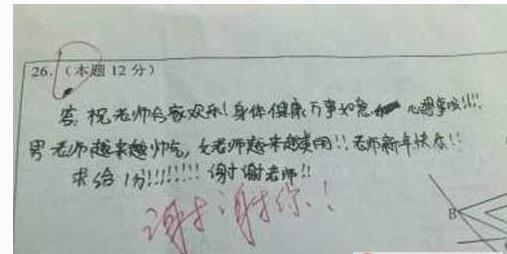 26. (本题 12 分)
答:祝老师合家欢乐!身体健康,万事如意,心想事成!!!!
男老师越来越帅气,女老师越来越美丽!!老师新年快乐!!
求给1分!!!!!!!! 谢谢老师!!
谢谢你!
B